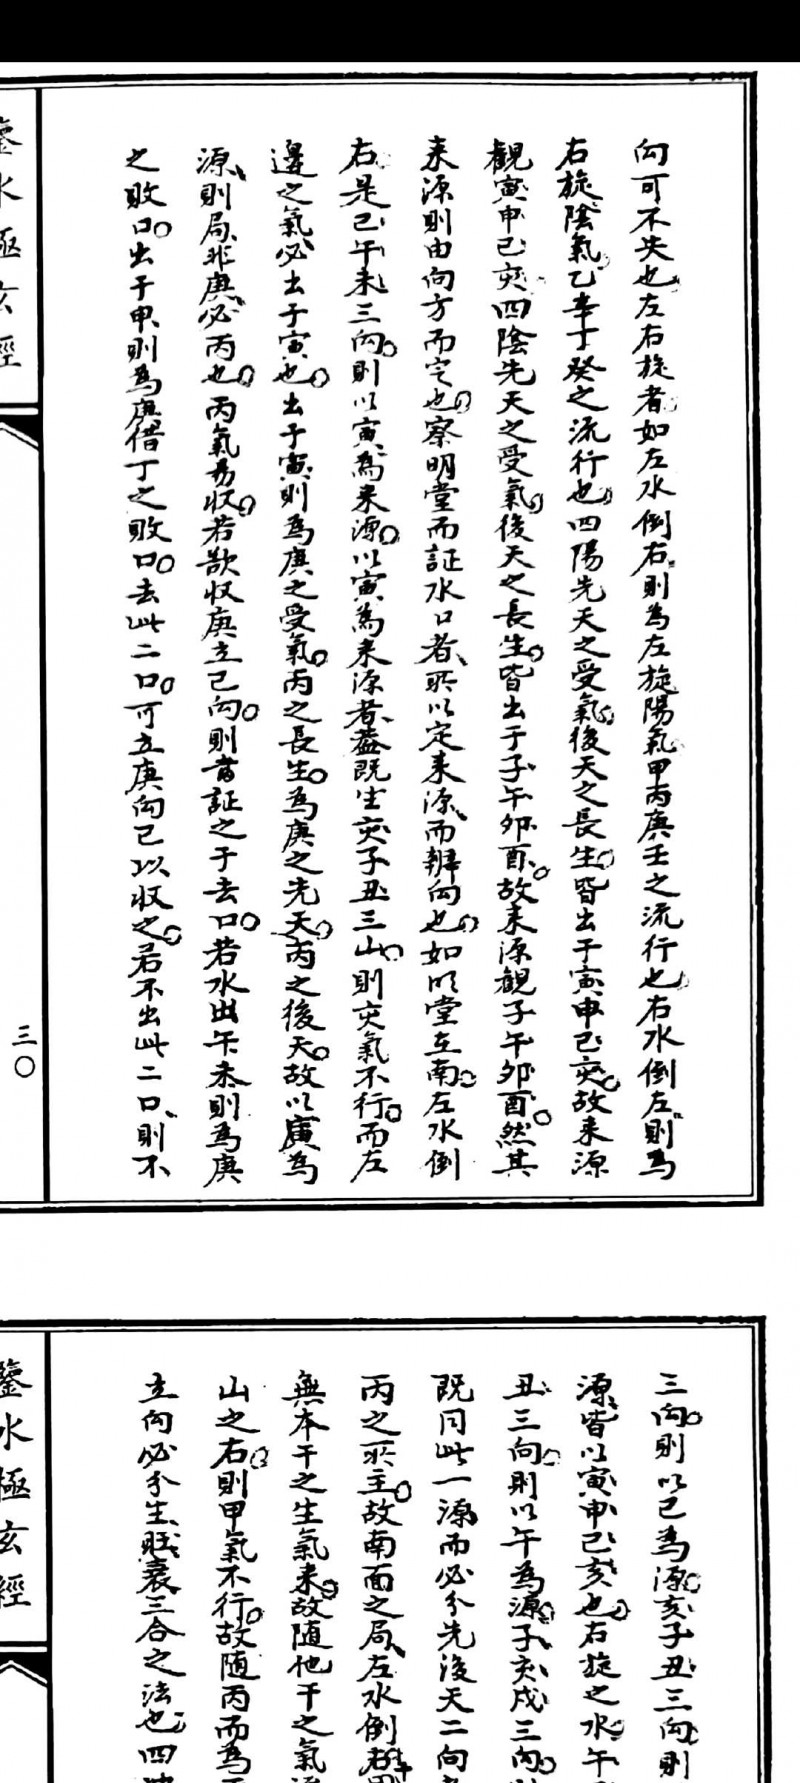 向可不失也左右旋者如左水倒右則為左旋陽氣甲丙庚壬之流行也右水倒左則為
右旋陰氣乙辛丁癸之流行也四陽先天之受氣後天之長生皆出于寅申巳亥故来源
觀寅申巳亥四陰先天之受氣後天之長生皆出于子午卯酉故来源觀子午卯酉然其
来源則由向方而定也察明堂而証水口者所以定来源而辨向也如明堂在南左水倒
右是巳午未三向則以寅為来源以寅為来源者葢既坐亥子丑三山則亥氣不行而左
邊之氣必出于寅也出于寅則為庚之受氣丙之長生為庚之先天丙之後天故以寅為
源則局非庚必丙也丙氣易收若欲收庚立巳向則當証之于去口若水出午未則為庚
之敗口出于申則為庚借丁之敗口去此二口可立庚向巳以收之若不出此二口則不
三〇
鑒水極玄經
三向則以巳為源亥子丑三向則
源皆以寅申巳亥也右旋之水午
丑三向則以午為源子亥戌三向
既同此一源而必分先後天二向
丙之所主故南面之局左水倒右
無本干之生氣来故隨他干之氣
山之右則甲氣不行故隨丙而為
立向必分生旺衰三合之法也四
鑒水極玄經